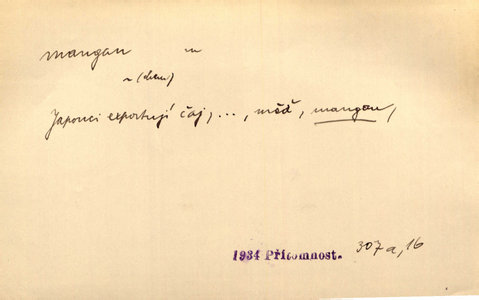 mangan m
~ (chem)
Japonci exportují čaj, ..., měď, mangan,
1934 Přítomnost. 307a, 16